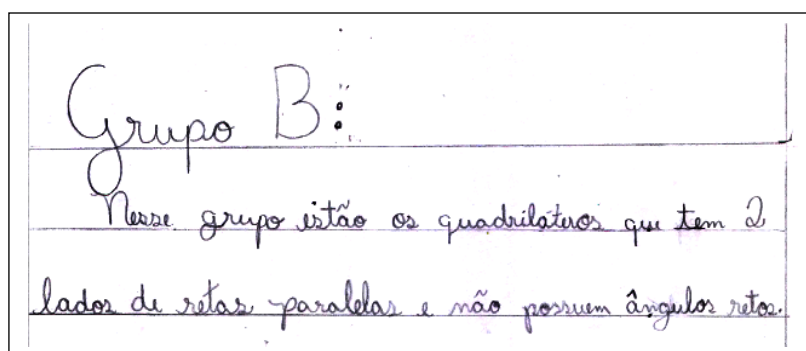 Grupo B:
Nesse grupo estão os quadriláteros que tem 2
lados de retas paralelas e não possuem ângulos retos.